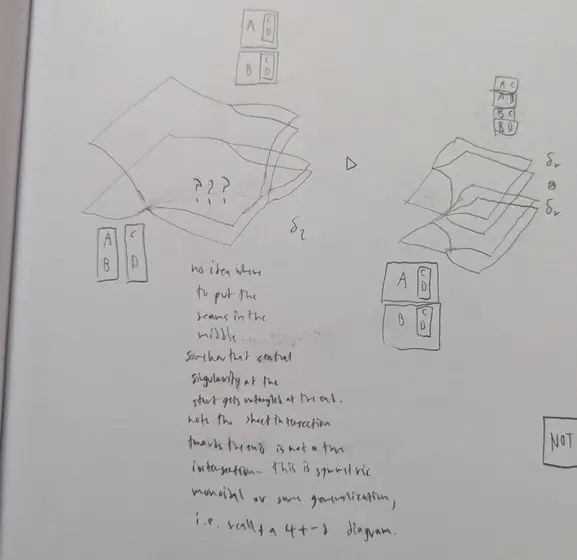 A C
D
B C
D
A C
A D
B C
B D
? ? ?
▷
δr
⊗
δr
δl
A
B
C
D
A C
D
B C
D
no idea where
to put the
seams in the
middle...
somehow that central
singularity at the
start gets untangled at the end.
note the sheet intersection
towards the end is not a true
intersection - this is symmetric
monoidal or some generalization,
i.e. recall a 4+-d diagram.
NOT